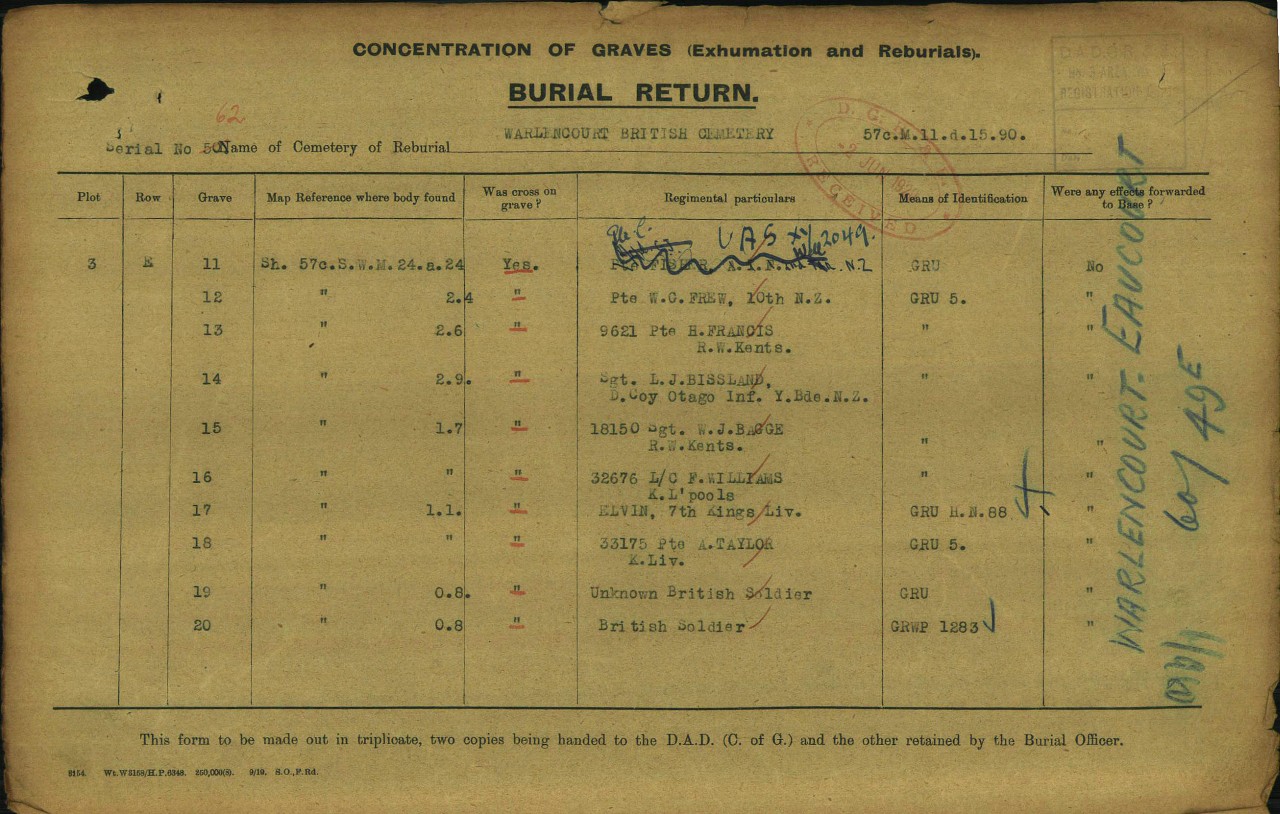 CONCENTRATION OF GRAVES (Exhumation and Reburials).
BURIAL RETURN.
62
Serial No Name of Cemetery of Reburial WARLENCOURT BRITISH CEMETERY 57c.M.11.d.15.90.
D. G. R. & E.
2 JUN 1920
RECEIVED
Plot Row Grave Map Reference where body found Was cross on grave? Regimental particulars Means of Identification Were any effects forwarded to Base?
Pte C. UAS 2049.
3 E 11 Sh. 57c.S.W.M.24.a.24 Yes. Pte FISHER A.I.N. N.Z GRU No
12 " 2.4 " Pte W.G. FREW, 10th N.Z. GRU 5. "
13 " 2.6 " 9621 Pte H.FRANCIS " "
R.W.Kents.
14 " 2.9. " Sgt. L.J.BISSLAND, " "
D.Coy Otago Inf. Y.Bde.N.Z.
15 " 1.7 " 18150 Sgt. W.J.BAGGE " "
R.W.Kents.
16 " " " 32676 L/C F.WILLIAMS " "
K.L'pools
17 " 1.1. " ELVIN, 7th Kings Liv. GRU H.N.88 "
18 " " " 33175 Pte A.TAYLOR GRU 5. "
K.Liv.
19 " 0.8. " Unknown British Soldier GRU "
20 " 0.8 " British Soldier GRWP 1283 "
WARLENCOURT-EAUCOURT
60/49E
This form to be made out in triplicate, two copies being handed to the D.A.D. (C. of G.) and the other retained by the Burial Officer.
8154. Wt.W5158/H.P.6348. 250,000(8). 9/19. S.O.,F.Rd.